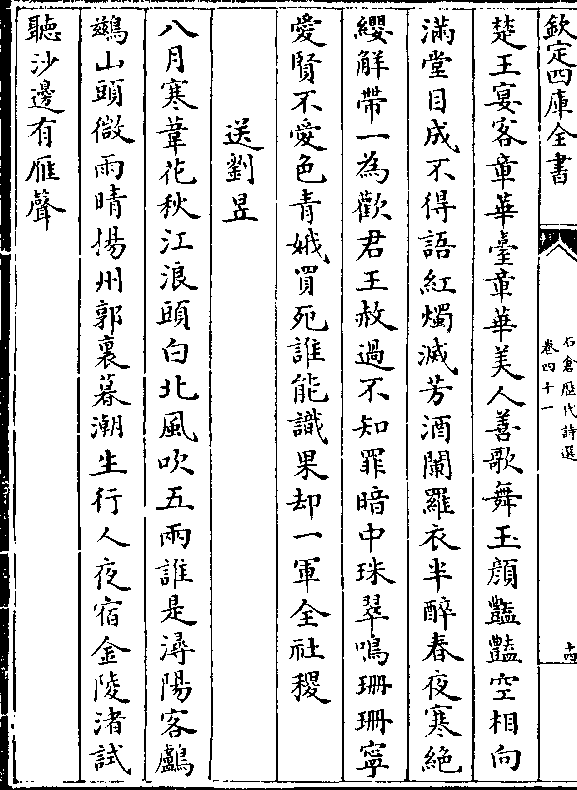 欽定四庫全書
石倉歴代詩選
卷四十一
十四
楚王宴客章華臺章華美人善歌舞玉顔豔豔空相向
滿堂目成不得語紅燭滅芳酒闌羅衣半醉春夜寒絶
纓解帶一為歡君王赦過不知罪暗中珠翠鳴珊珊寧
愛賢不愛色青娥買死誰能識果却一軍全社稷
送劉昱
八月寒葦花秋江浪頭白北風吹五兩誰是潯陽客鸕
鷀山頭微雨晴揚州郭裏暮潮生行人夜宿金陵渚試
聽沙邊有雁聲